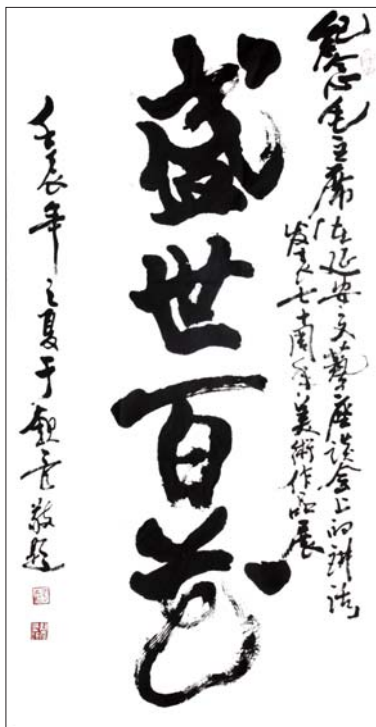 纪念毛主席《在延安文藝座谈会上的讲话》
发表七十周年美術作品展
盛世百花
壬辰年之夏于 敬题